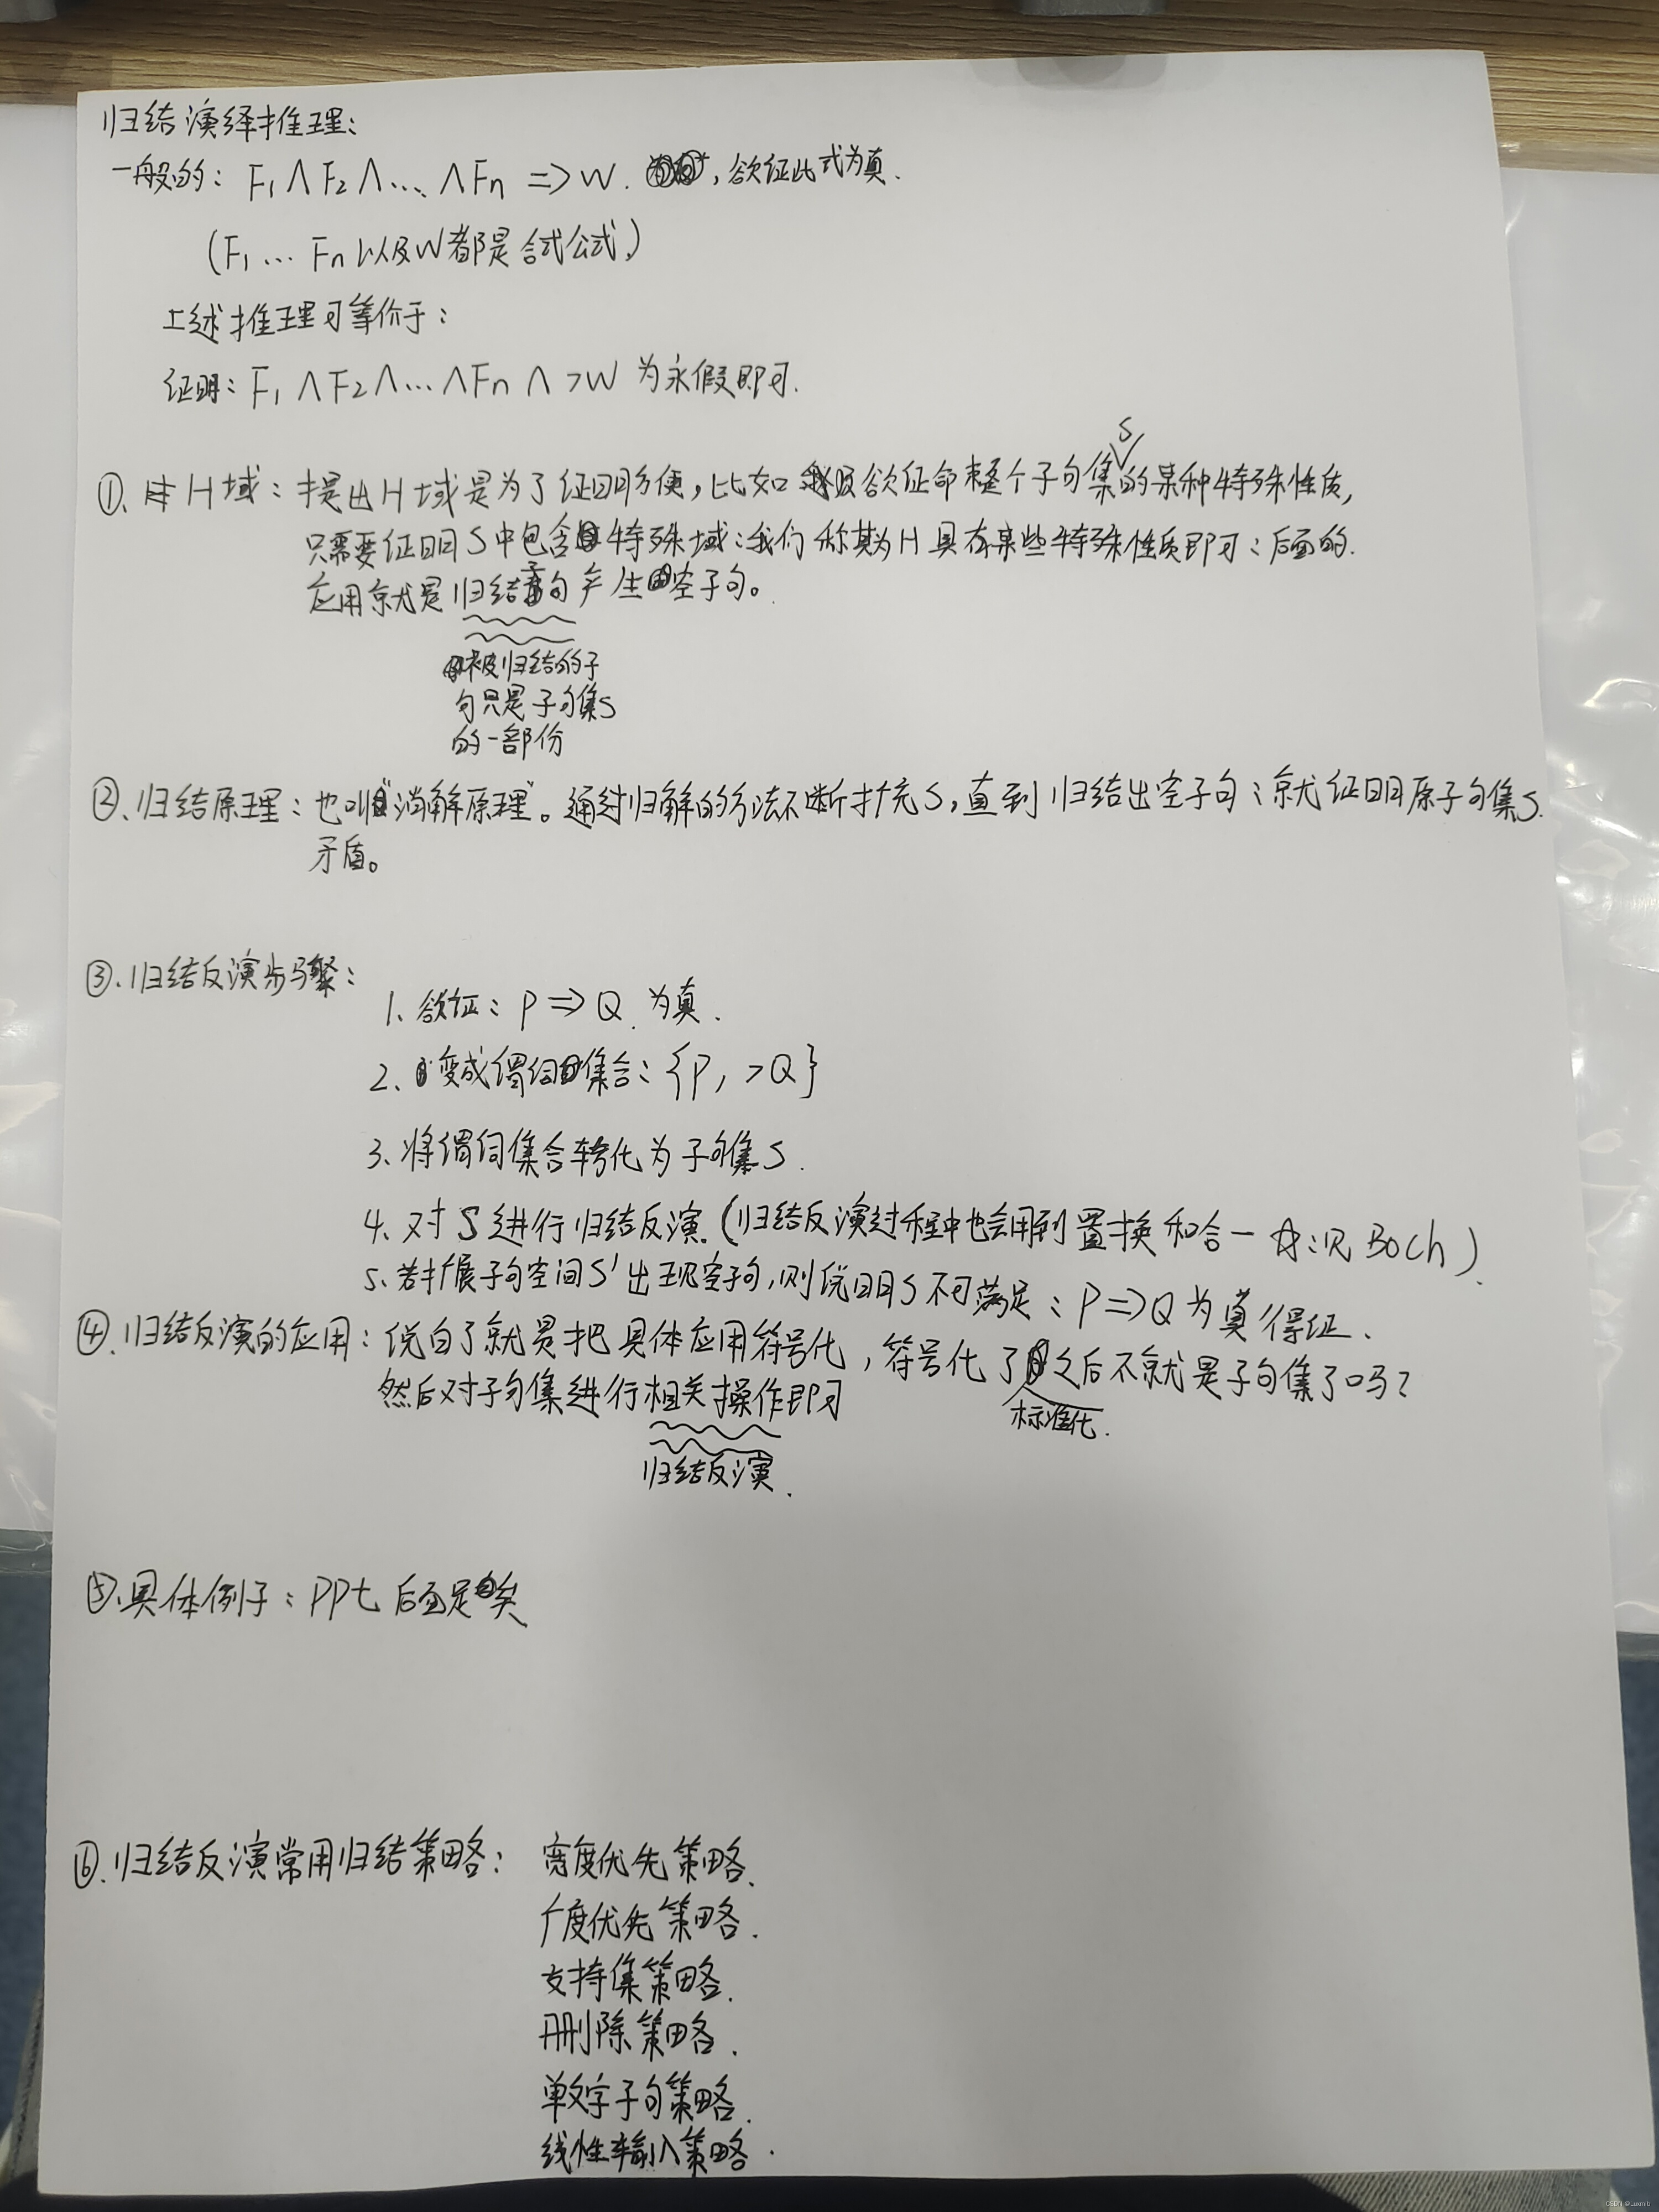 归结演绎推理:
一般的: F₁∧F₂∧...∧Fn => W. ,欲证此式为真.
(F₁... Fn以及W都是合式公式)
上述推理可等价于:
证明: F₁∧F₂∧...∧Fn∧¬W 为永假即可.
①、H域:提出H域是为了证明方便,比如欲证命整个子句集S的某种特殊性质,
只需要证明S中包含特殊域:我们称其为H具有某些特殊性质即可;后面的.
应用就是归结子句产生空子句。
被归结的子
句只是子句集S
的一部份
②、归结原理:也叫“消解原理”。通过归解的方法不断扩充S,直到归结出空子句;就证明原子句集S.
矛盾。
③、归结反演步骤:
1、欲证: P => Q 为真.
2、变成谓词集合:{P, ¬Q}
3、将谓词集合转化为子句集S.
4、对S进行归结反演.(归结反演过程中也会用到置换和合一 ☆:见 Boch).
5、若扩展子句空间S'出现空子句,则说明S不可满足;P=>Q为真得证.
④、归结反演的应用:说白了就是把具体应用符号化,符号化了之后不就是子句集了吗?
标准化.
然后对子句集进行相关操作即可
归结反演.
⑤、具体例子:PPt后面足矣
⑥、归结反演常用归结策略: 宽度优先策略.
广度优先策略.
支持集策略.
删除策略.
单文字子句策略.
线性输入策略.
CSDN @Luxmlb